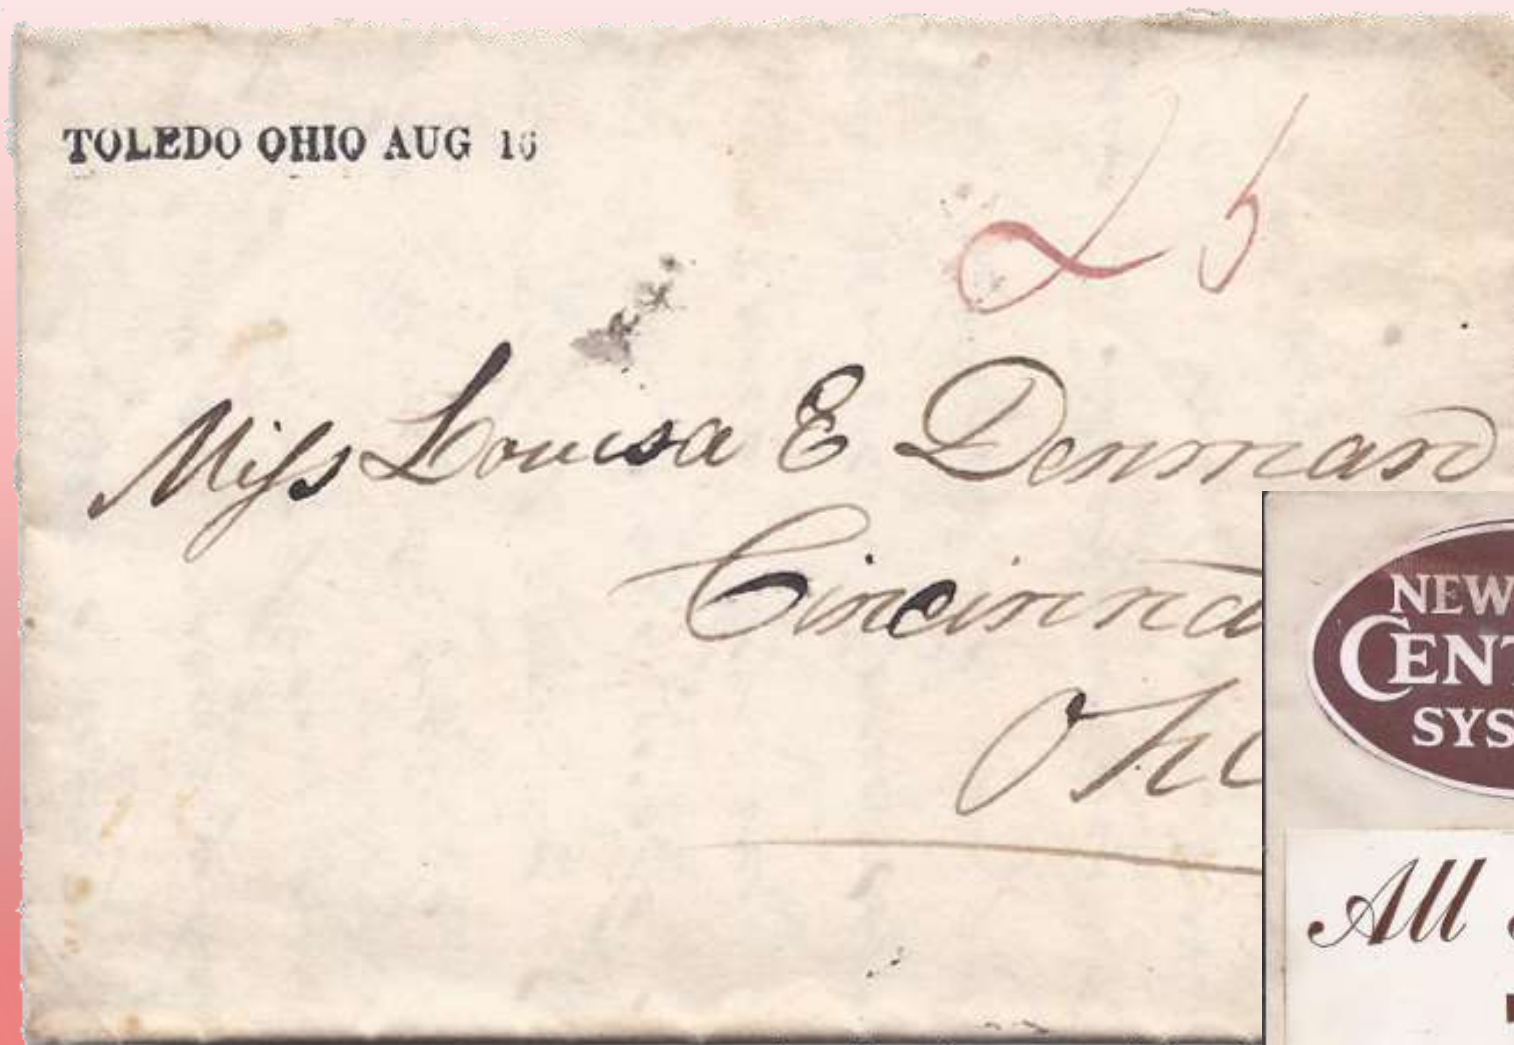 TOLEDO OHIO AUG 16
25
Miss Louisa E Denman
Cincinna
Ohi
NEW
CENT
SYS
All